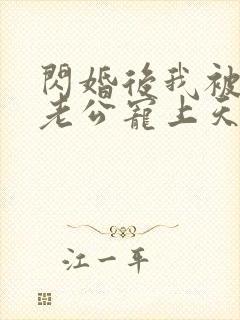 閃婚後我被
老公寵上天
江一平